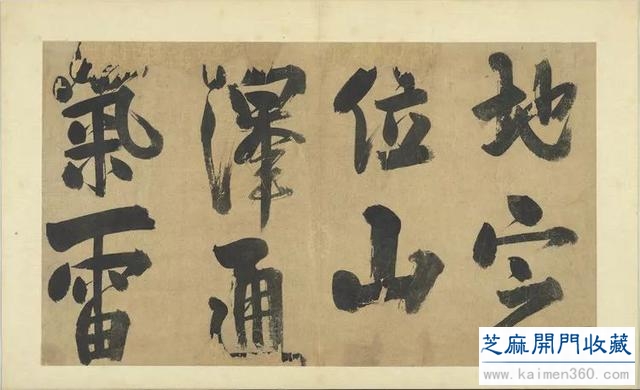 地定
位山
澤通
氣雷
芝麻開門收藏
www.kaimen360.com